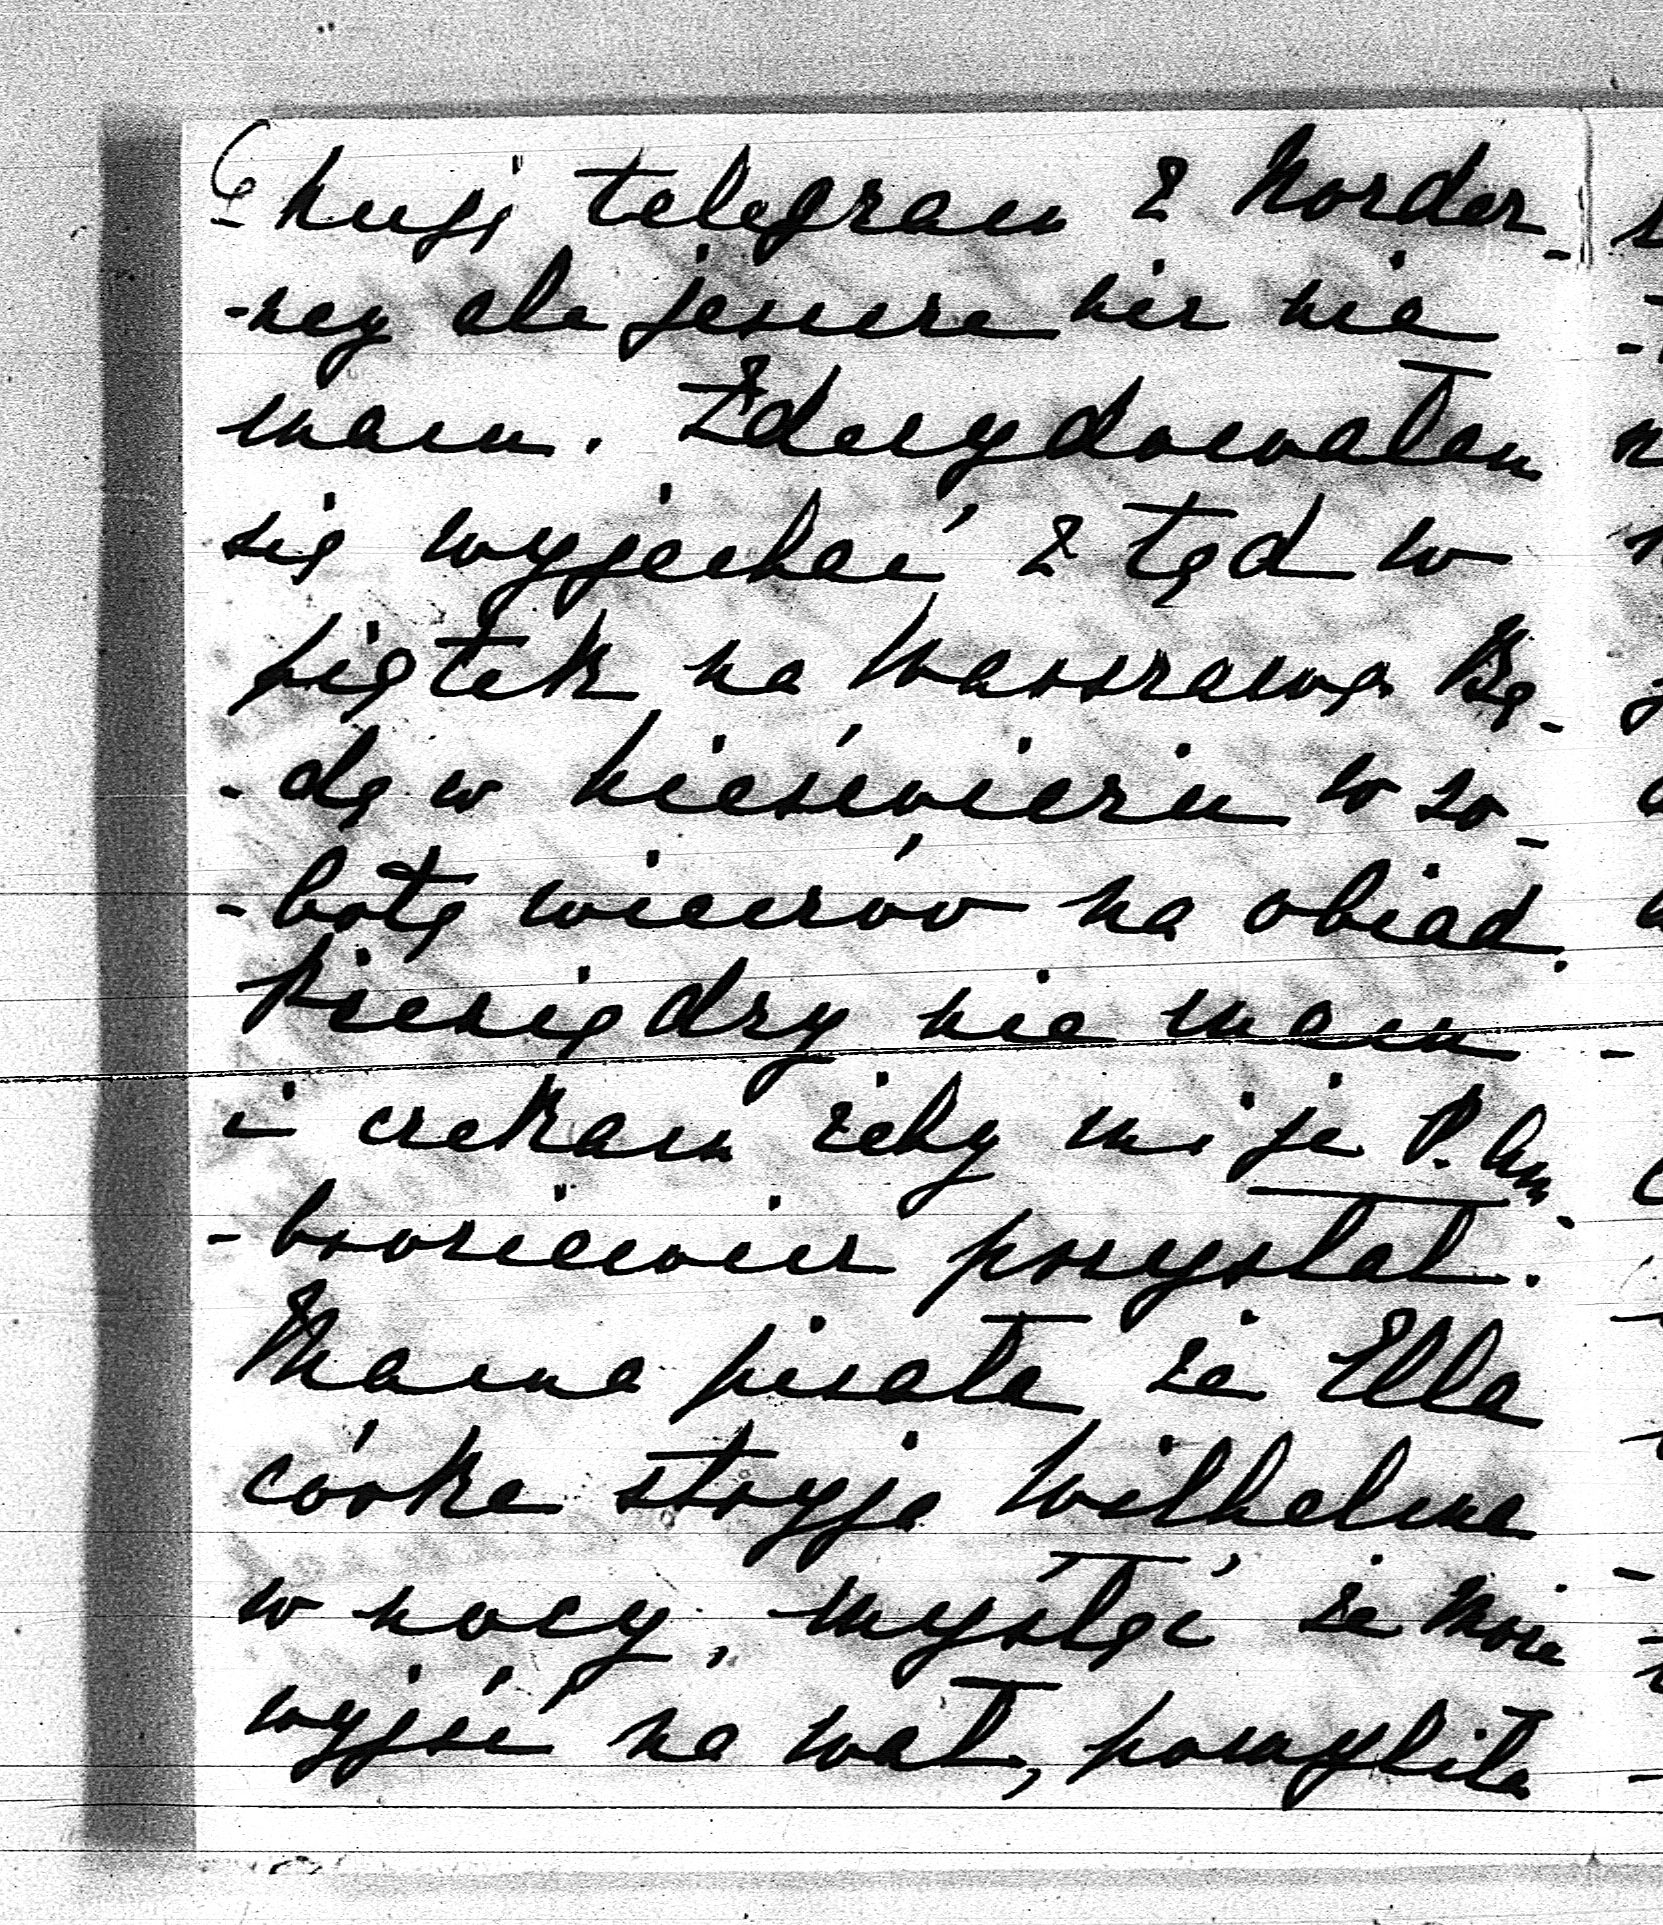 kuję telegram z Norder-
-ney ale jeszcze nic nie
mam. Zdecydowałam
się wyjechać z tąd w
piątek na Warszawę. Bę-
-dę w Nieświeżu w so-
-botę wieczór na obiad.
Pieniędzy nie mam
i czekam żeby mi je P.
-borziewicz przysłał.
Mama pisała że Ella
córka stryja Wilhelma
w nocy, myśląc że może
wyjść na wał, pomyliła